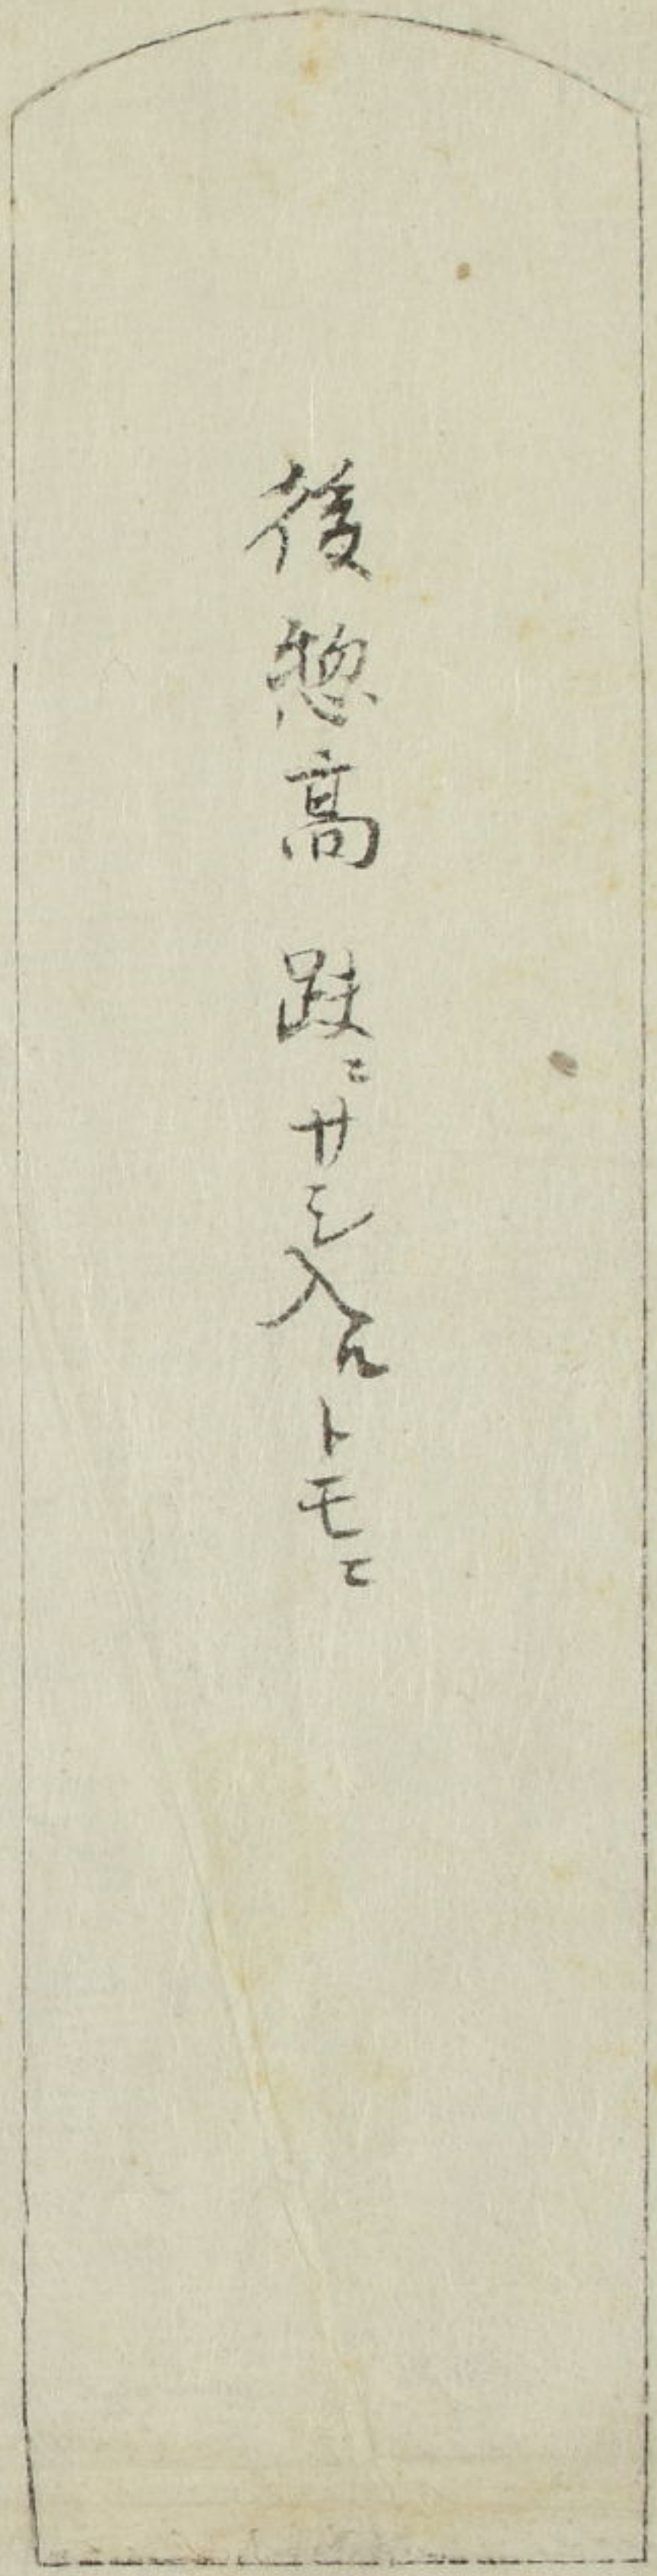 後惣高 趺ニサシ入ルトモニ